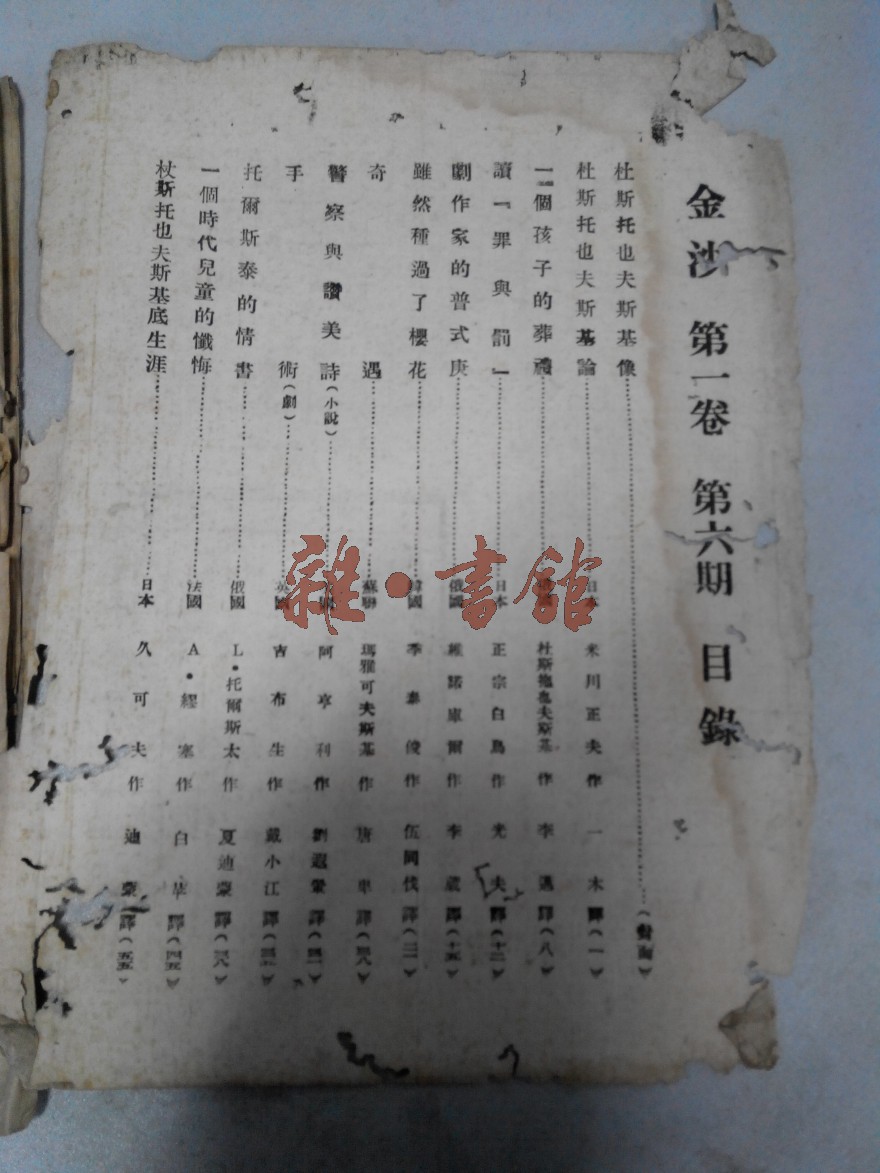 金沙 第一卷 第六期 目錄
杜斯托也夫斯基像……(封面)
杜斯托也夫斯基論……日本 米川正夫作 一木譯(一)
一個孩子的葬禮……杜斯拖也夫斯基作 李邁譯(八)
讀「罪與罰」……日本 正宗白鳥作 光夫譯(十二)
劇作家的普式庚……俄國 維諾庫爾作 李葳譯(十五)
雖然種過了櫻花……韓國 李泰俊作 伍岡伐譯
奇遇……蘇聯 瑪雅可夫斯基作 唐卑譯
警察與讚美詩(小說)……阿亨利作 劉遐譯
手術(劇)……英國 吉布生作 戴小江譯
托爾斯泰的情書……俄國 L·托爾斯太作 夏迪蒙譯
一個時代兒童的懺悔……法國 A·繆塞作 白草譯(四五)
杜斯托也夫斯基底生涯……日本 久可夫作 迪蒙譯(五五)
雜·書館